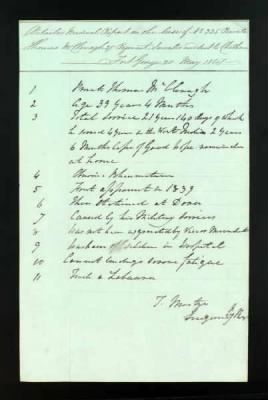 Detailed Medical Report on the case of No 225 Private
Thomas McClenagh 27 Regiment Invalids
Fort George 20 May
1 Private Thomas McClenagh
2 Age 39 Years 4 Months
3 Total Service 21 Years 140 days of which
he served 4 years in the West Indies 2 Years
6 Months Cape of Good hope remainder
at home
4 Chronic Rheumatism
5 First appeared in 1839
6 Then Stationed at Dover
7 Caused by his Military Service
8 Has not been aggravated by Vice or Misconduct
9 in Hospital
10 Cannot undergo severe fatigue
11 Trade a Labourer
Surgeon